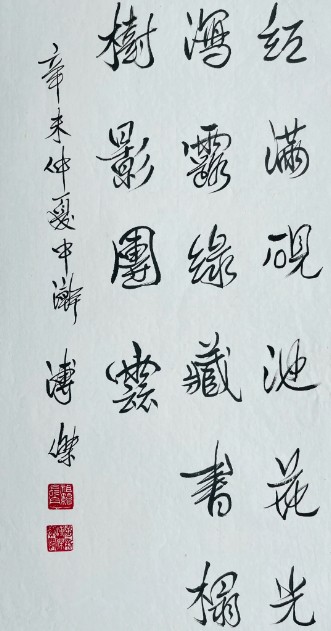 紅滿硯池花光
瀉露綠藏書榻
樹影團雲
辛未仲夏中澣 溥傑